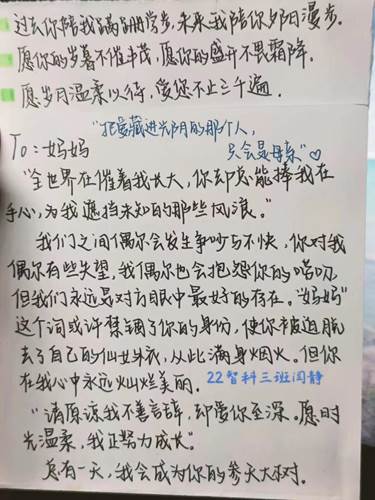 过去你陪我蹒跚学步,未来我陪你夕阳漫步.
愿你的岁暮不催丰茂,愿你的盛开不畏霜降.
愿岁月温柔以待,爱您不止三千遍.
"把爱藏进光阴的那个人,
只会是母亲"♡
To:妈妈
"全世界在催着我长大,你却总能捧我在
手心,为我遮挡未知的那些风浪。"
我们之间偶尔会发生争吵与不快,你对我
偶尔有些失望,我偶尔也会抱怨你的唠叨
但我们永远是对方眼中最好的存在。"妈妈"
这个词或许禁锢了你的身份,使你被迫脱
去了自己的仙女外衣,从此满身烟火。但你
在我心中永远灿烂美丽.
22智科三班闫静
"请原谅我不善言辞,却爱你至深。愿时
光温柔,我正努力成长"
总有一天,我会成为你的参天大树.